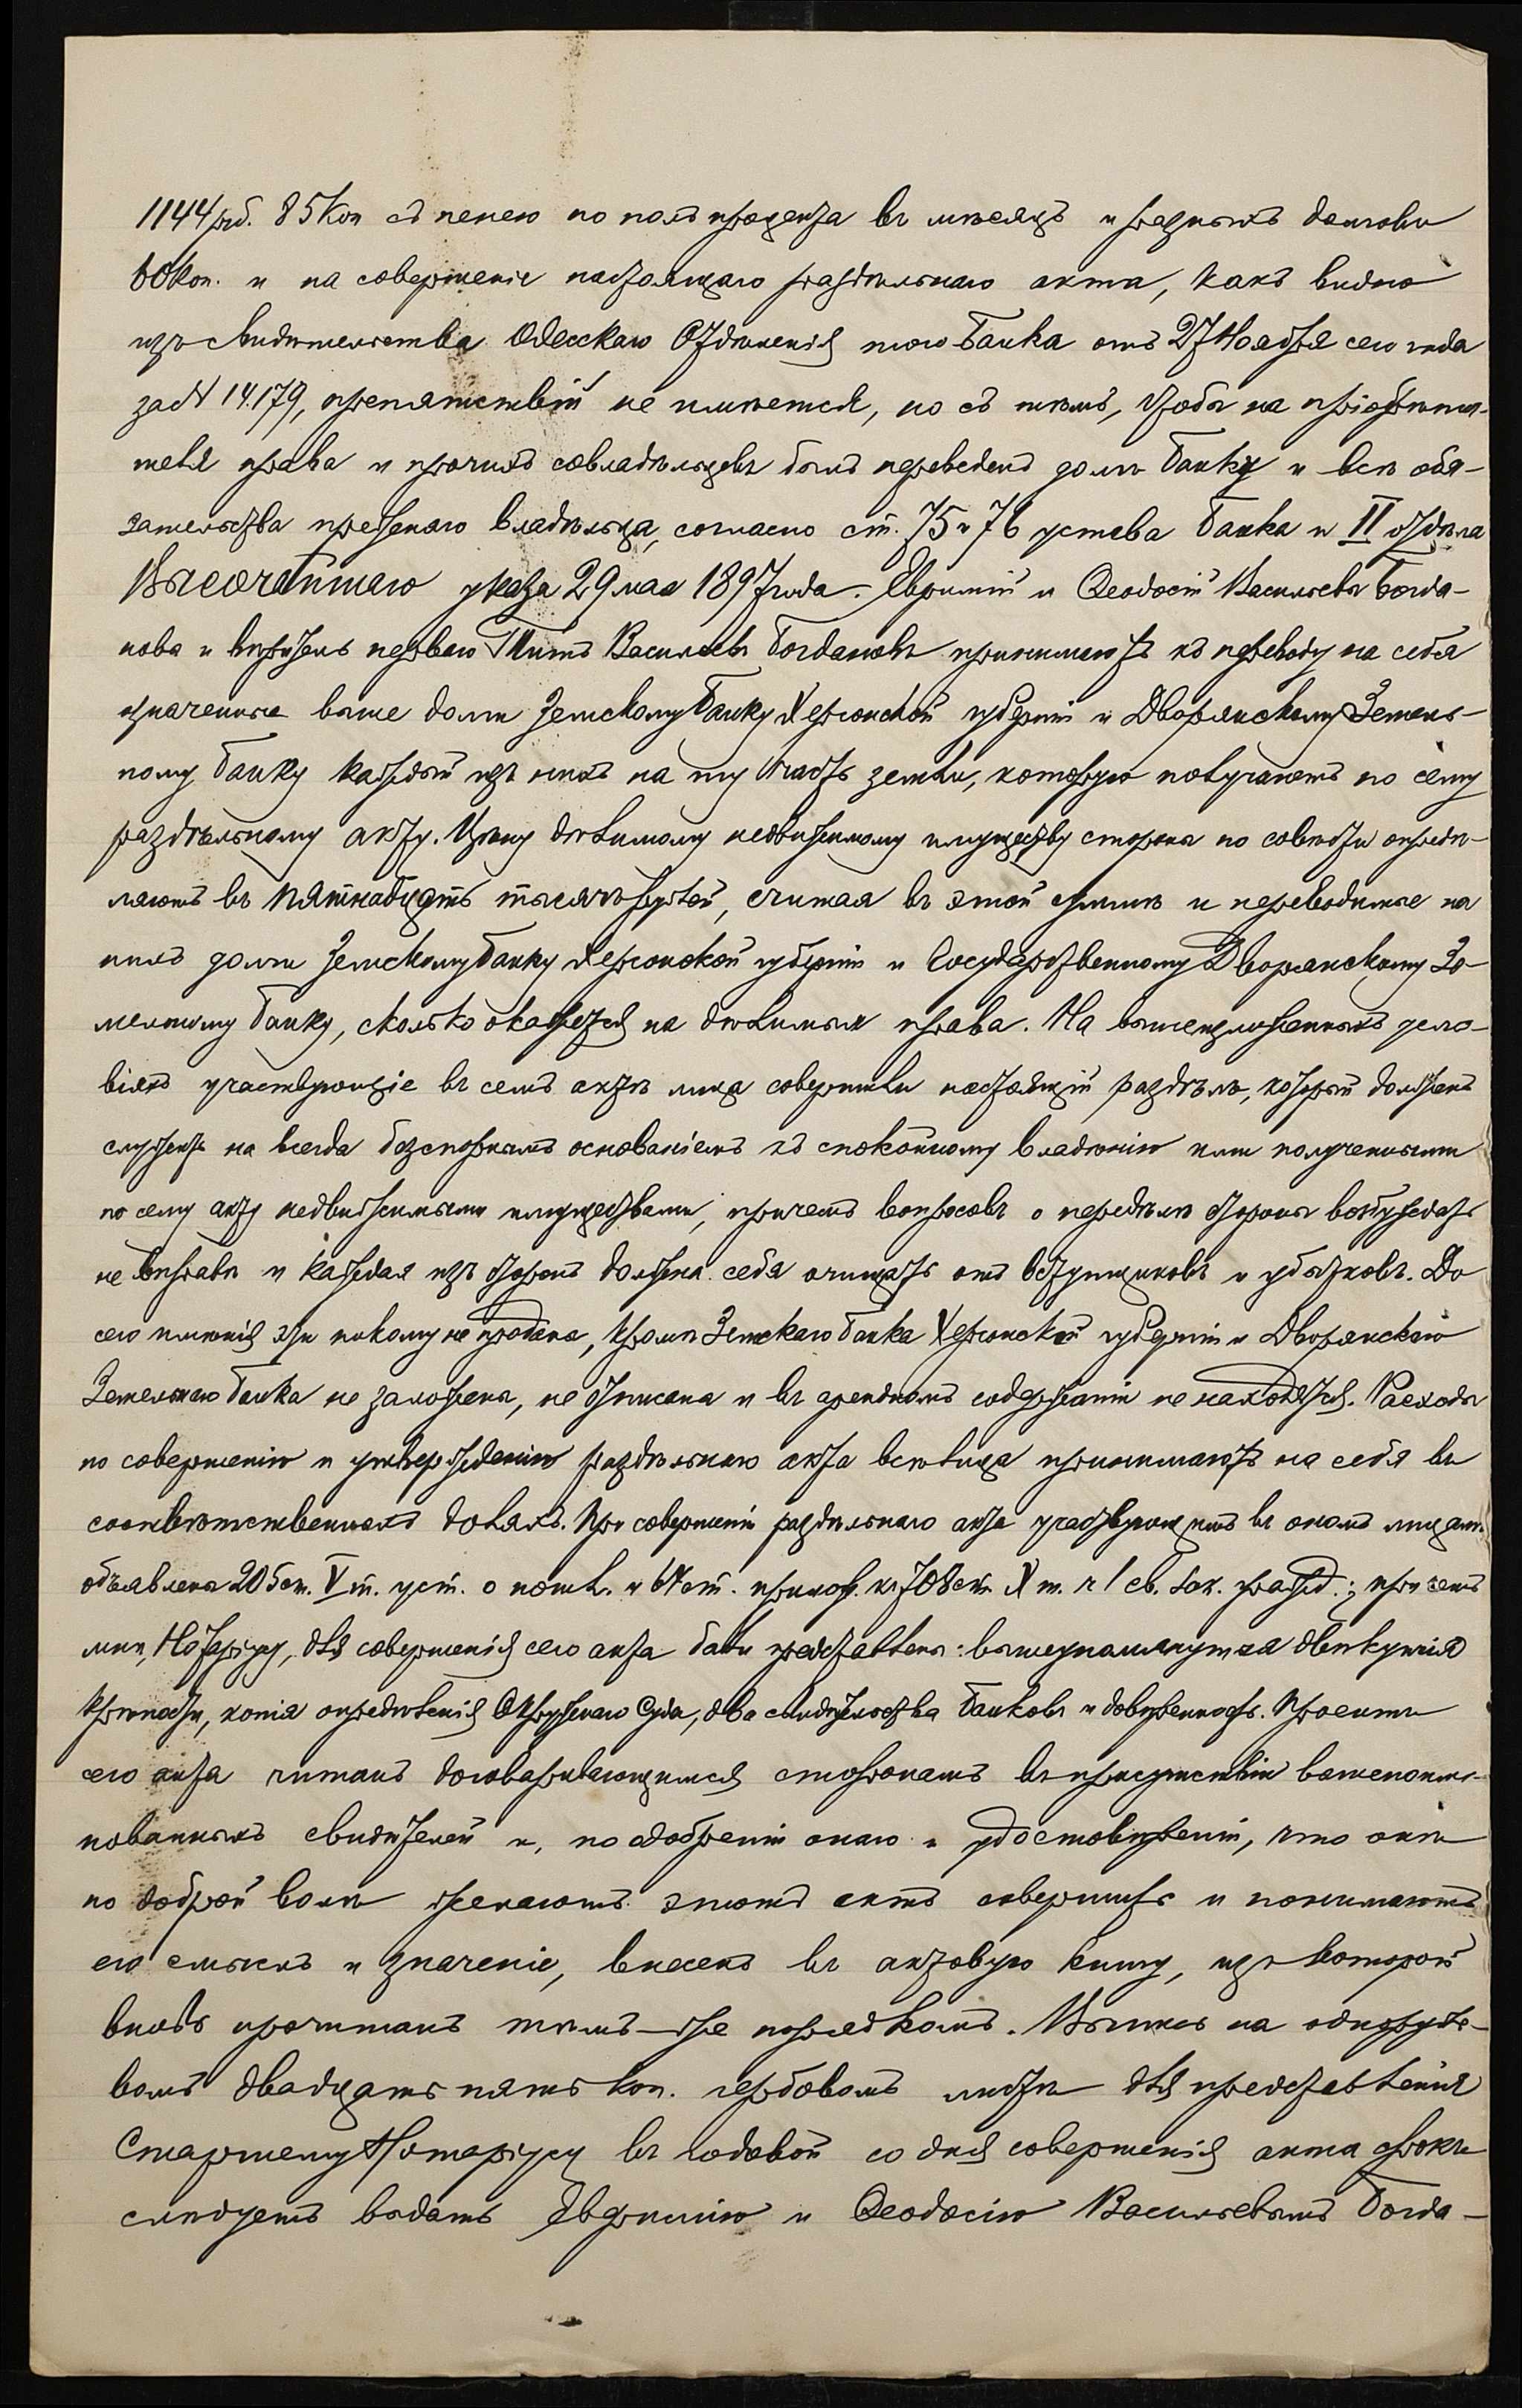 1144 руб. 85 коп съ пенею по полъ процента въ мѣсяцъ и разныхъ долговъ
60 коп. и на совершеніе настоящаго раздѣльнаго акта, какъ видно
изъ свидѣтельства Одесскаго Отдѣленія того Банка отъ 27 Ноября сего года
за № 14.179, препятствій не имѣется, но съ тѣмъ, чтобы на пріобрѣта-
теля права и прочихъ совладѣльцевъ былъ переведенъ долгъ Банку и всѣ обя-
зательства прежняго владѣльца, согласно ст. 75 и 76 устава Банка и II отдѣла
Высочайшаго указа 29 мая 1897 года. Евфимій и Ѳеодосій Васильевы Богда-
новы и вѣритель перваго Титъ Васильевъ Богдановъ принимаютъ къ переводу на себя
означенные выше долги Земскому Банку Херсонской губерніи и Дворянскому Земель-
ному Банку каждый изъ нихъ на ту часть земли, которую получаетъ по сему
раздѣльному акту. Цѣну дѣлимому недвижимому имуществу стороны по совѣсти опредѣ-
ляютъ въ пятнадцать тысячъ рублей, считая въ этой суммѣ и переводимые на
нихъ долги Земскому Банку Херсонской губерніи и Государственному Дворянскому Зе-
мельному Банку, сколько окажется на дѣлимыя права. На вышеизложенныхъ усло-
віяхъ участвующіе въ семъ актѣ лица совершили настоящій раздѣлъ, который долженъ
служить на всегда безспорнымъ основаніемъ къ спокойному владѣнію ими полученными
по сему акту недвижимыми имуществами, причемъ вопросовъ о передѣлѣ стороны возбуждать
не вправѣ и каждая изъ сторонъ должна себя очищать отъ вступщиковъ и убытковъ. До
сего имѣнія эти никому не проданы, кромѣ Земскаго Банка Херсонской губерніи и Дворянскаго
Земельнаго Банка не заложены, не описаны и въ арендномъ содержаніи не находятся. Расходы
по совершенію и утвержденію раздѣльнаго акта всѣ лица принимаютъ на себя въ
соотвѣтственныхъ доляхъ. При совершеніи раздѣльнаго акта участвующимъ въ ономъ лицамъ
объявлены 205 ст. V т. уст. о пошл. и 64 ст. прилож. къ 708 ст. X т. ч 1 св. зак. гражд.; при чемъ
мнѣ, Нотаріусу, для совершенія сего акта были представлены: вышеупомянутыя двѣ купчія
крѣпости, копія опредѣленія Окружнаго Суда, два свидѣтельства Банковъ и довѣренность. Проектъ
сего акта читанъ договаривающимся сторонамъ въ присутствіи вышепоиме-
нованныхъ свидѣтелей и, по одобреніи онаго и удостовѣреніи, что они
по доброй волѣ желаютъ этотъ актъ совершить и понимаютъ
его смыслъ и значеніе, внесенъ въ актовую книгу, изъ которой
вновь прочитанъ тѣмъ-же порядкомъ. Выпись на однорубле-
вомъ двадцать пять коп. гербовомъ листѣ для представленія
Старшему Нотаріусу въ годовой со дня совершенія акта срокъ
слѣдуетъ выдать Евфимію и Ѳеодосію Васильевымъ Богда-